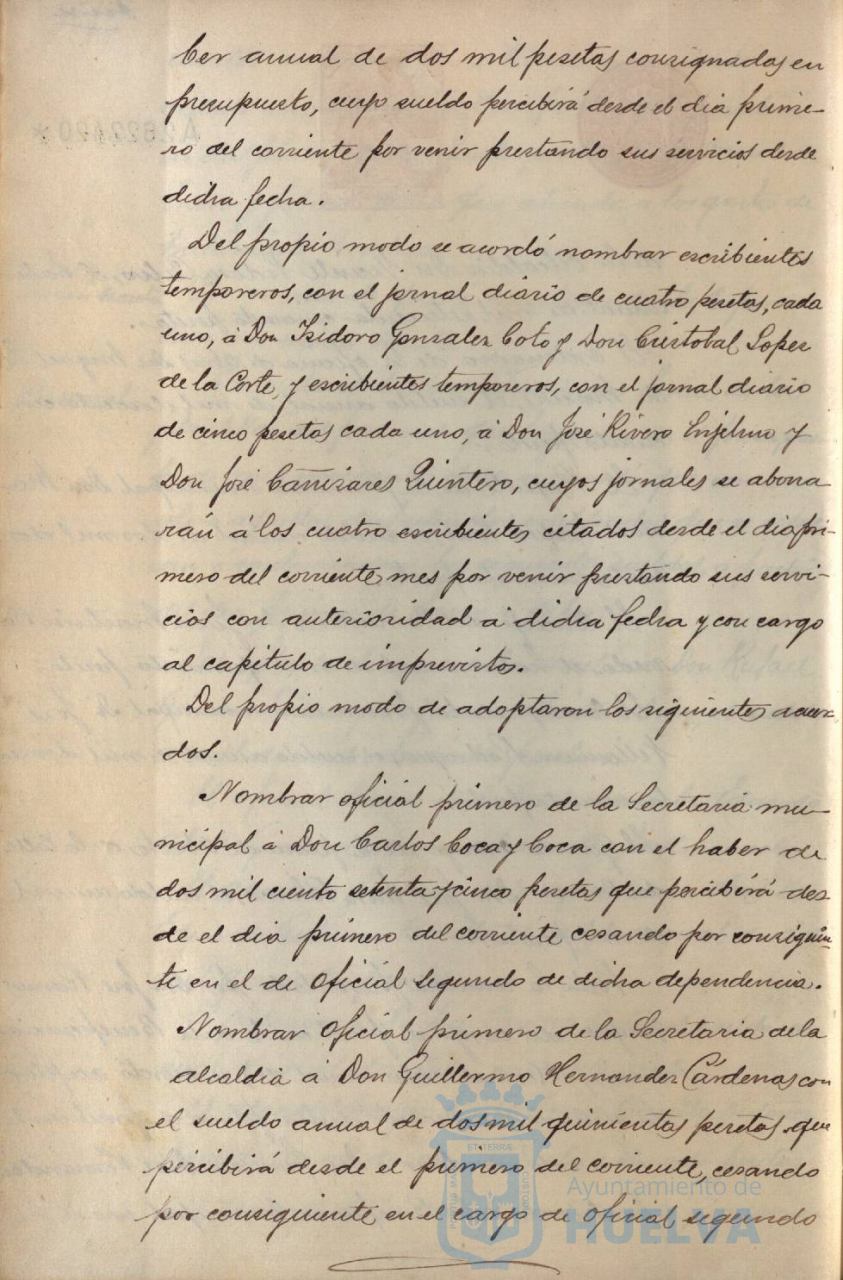 ber anual de dos mil pesetas consignadas en
presupuesto, cuyo sueldo percibirá desde el dia prime-
ro del corriente por venir prestando sus servicios desde
dicha fecha.
Del propio modo se acordó nombrar escribientes
temporeros, con el jornal diario de cuatro pesetas, cada
uno, á Don Isidoro Gonzalez Coto y Don Cristobal Lopez
de la Corte, y escribientes temporeros, con el jornal diario
de cinco pesetas cada uno, á Don José Rivero y
Don José Cañizares Quintero, cuyos jornales se abona
rán á los cuatro escribientes citados desde el dia pri-
mero del corriente mes por venir prestando sus servi-
cios con anterioridad á dicha fecha y con cargo
al capitulo de imprevistos.
Del propio modo de adoptaron los siguientes acuer
dos.
Nombrar oficial primero de la Secretaria mu-
nicipal á Don Carlos Coca y Coca con el haber de
dos mil ciento setenta y cinco pesetas que percibirá des
de el dia primero del corriente cesando por consiguien
te en el de oficial segundo de dicha dependencia.
Nombrar oficial primero de la Secretaria de la
alcaldia á Don Guillermo Hernandez Cárdenas con
el sueldo anual de dos mil quinientas pesetas que
percibirá desde el primero del corriente, cesando
por consiguiente en el cargo de oficial segundo
Ayuntamiento de
HUELVA